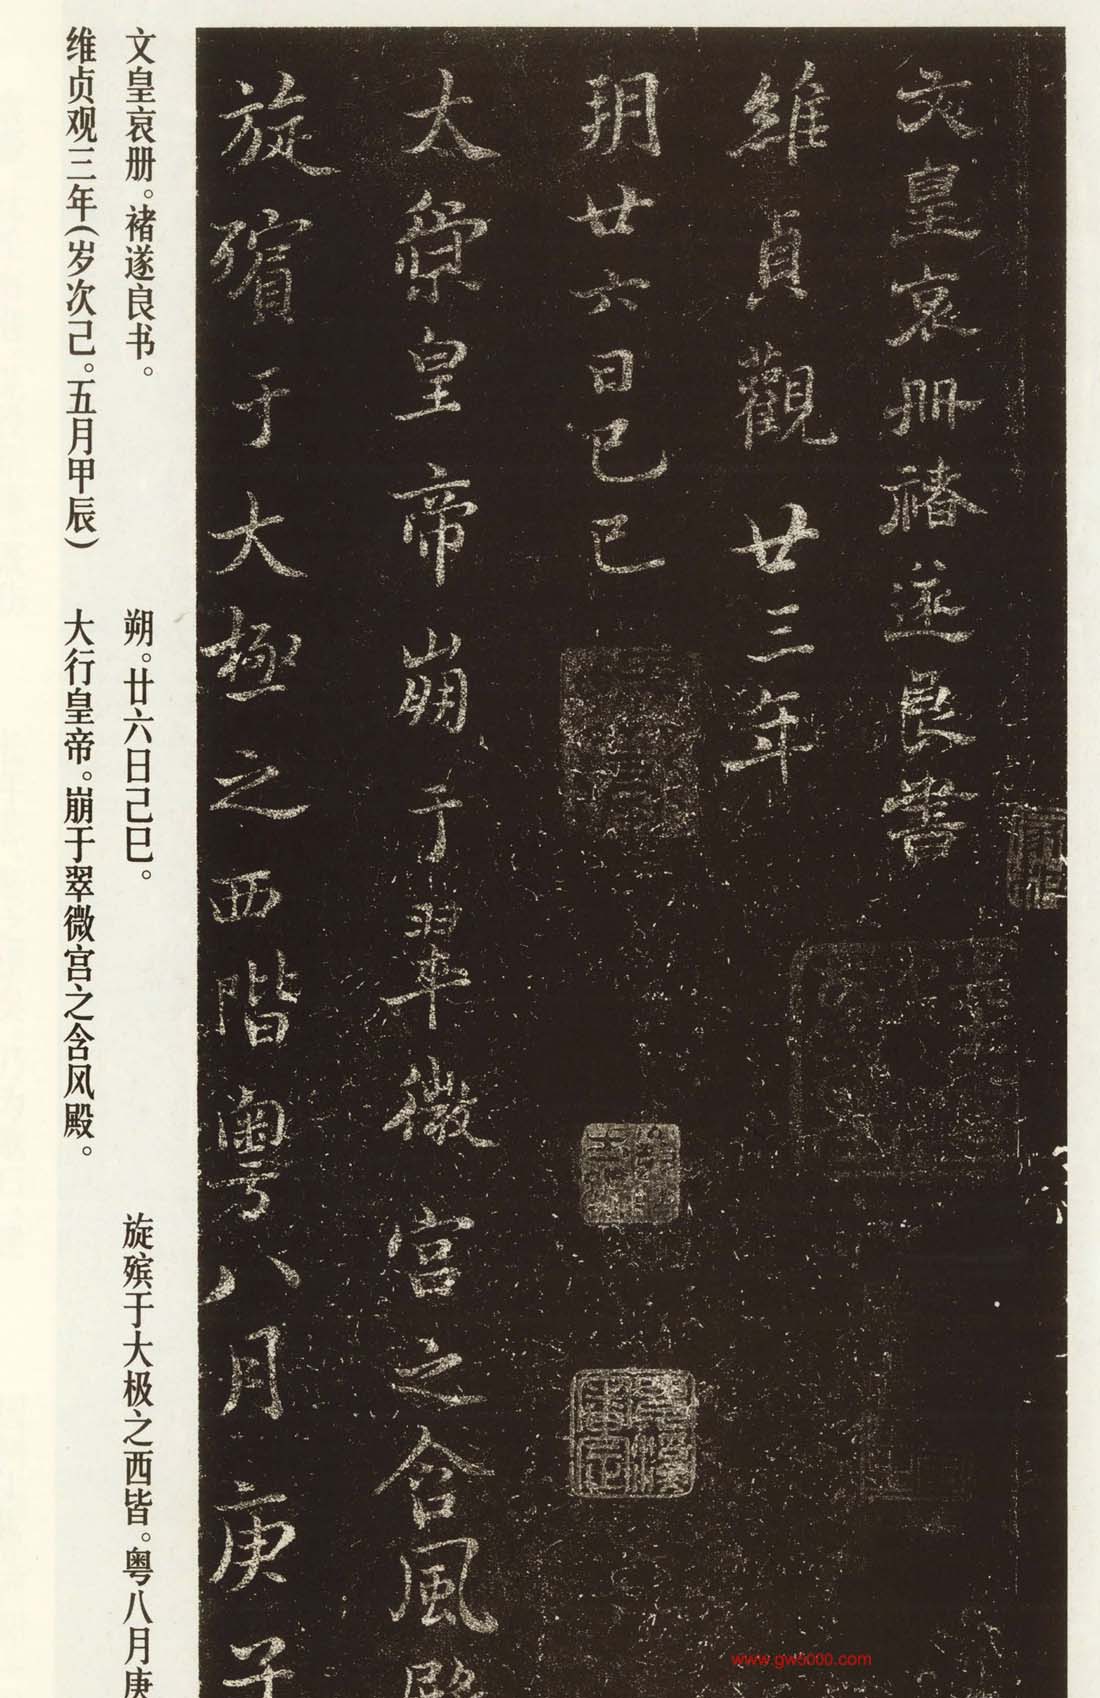 文皇哀冊褚遂良書
維貞觀廿三年
朔廿六日己巳
太宗皇帝崩于翠微宮之含風殿
旋殯于大極之西階粵八月庚子
文皇哀册。褚遂良书。
维贞观三年(岁次己。五月甲辰)
朔。廿六日己巳。
大行皇帝。崩于翠微宫之含风殿。
旋殡于大极之西皆。粤八月庚
www.gw5000.com